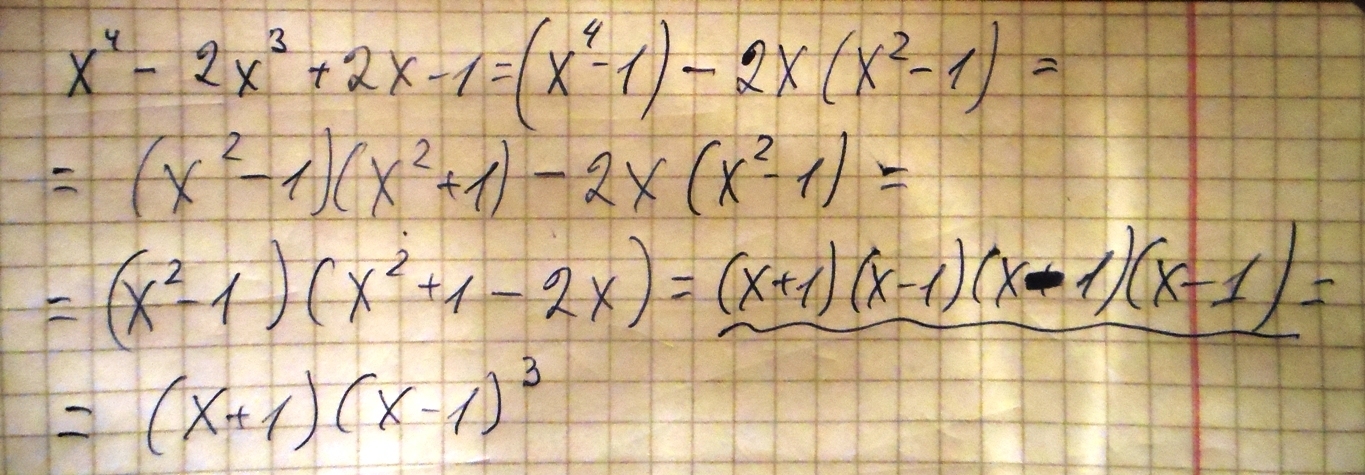 x⁴ - 2x³ + 2x - 1 = (x⁴ - 1) - 2x (x² - 1) =
= (x² - 1)(x² + 1) - 2x (x² - 1) =
= (x² - 1)(x² + 1 - 2x) = (x+1)(x-1)(x-1)(x-1) =
= (x+1)(x-1)³